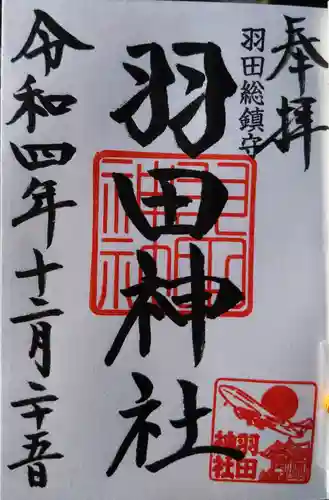 奉拝
羽田総鎮守
羽田神社
令和四年十二月二十五日
羽田
神社